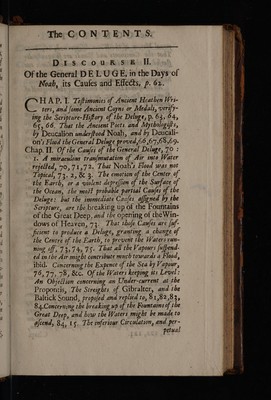 The CONTENTS.
DISCOURSE II.
Of the General DELUGE, in the Days of
Noah, its Causes and Effects, p. 62.
CHAP. I. Testimonies of Ancient Heathen Wri-
ters, and some Ancient Coyns or Medals, verify-
ing the Scripture-History of the Deluge, p. 63, 64,
65, 66. That the Ancient Poets and Mythologists,
by Deucalion understood Noah, and by Deucali-
on's Flood the General Deluge proved, 66, 67, 68, 69.
Chap. II. Of the Causes of the General Deluge, 70:
1. A miraculous transmutation of Air into Water
rejected, 70, 71, 72. That Noah's Flood was not
Topical, 73. 2, & 3. The emotion of the Center of
the Earth, or a violent depression of the Surface of
the Ocean, the most probable partial Causes of the
Deluge: but the immediate Causes assigned by the
Scripture, are the breaking up of the Fountains
of the Great Deep, and the opening of the Win-
dows of Heaven, 73. That those Causes are suf-
ficient to produce a Deluge, granting a change of
the Center of the Earth, to prevent the Waters run-
ning off, 73, 74, 75. That all the Vapours suspend-
ed in the Air might contribute much towards a Flood,
ibid. Concerning the Expence of the Sea by Vapour,
76, 77, 78, &c. Of the Waters keeping its Level:
An Objection concerning an Under-current at the
Propontis, The Streights of Gibralter, and the
Baltick Sound, proposed and replied to, 81, 82, 83,
84. Concerning the breaking up of the Fountains of the
Great Deep, and how the Waters might be made to
ascend, 84, 85. The inferiour Circulation, and per-
petual